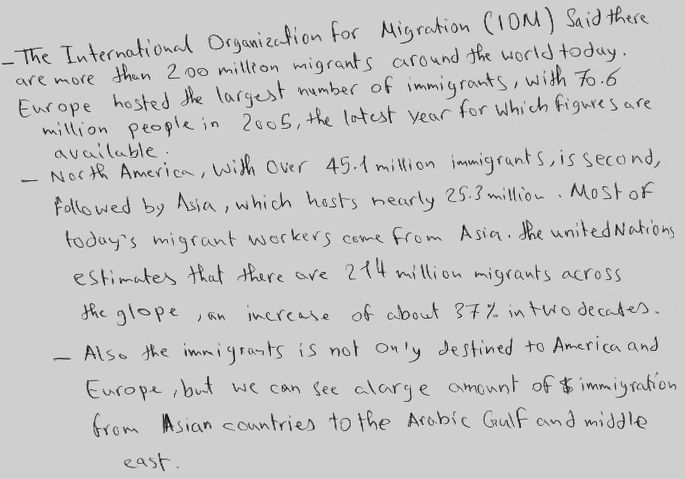 - The International Organization for Migration (IOM) Said there
are more than 200 million migrants around the world today.
Europe hosted the largest number of immigrants, with 70.6
million people in 2005, the latest year for which figures are
available.
- North America, with over 45.1 million immigrants, is second,
followed by Asia, which hosts nearly 25.3 million. Most of
today's migrant workers come from Asia. the united Nations
estimates that there are 214 million migrants across
the glope, an increase of about 37% in two decates.
- Also the immigrants is not only destined to America and
Europe, but we can see a large amount of immigration
from Asian countries to the Arabic Gulf and middle
east.